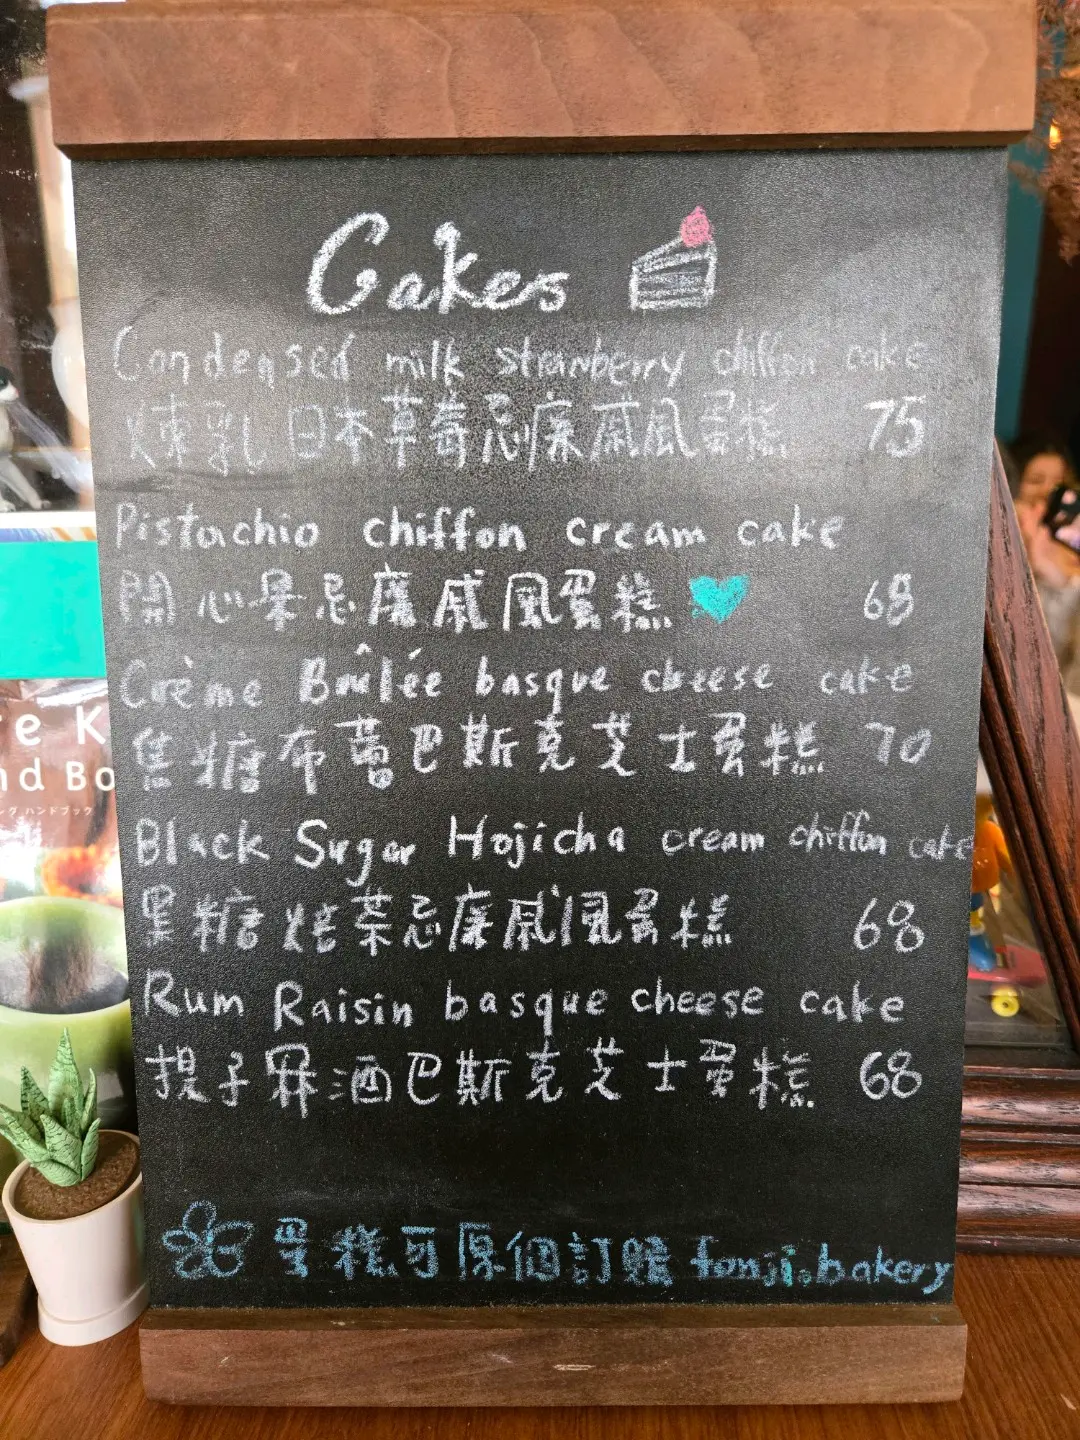 Cakes
Condensed milk strawberry chiffon cake
煉乳日本草莓忌廉戚風蛋糕 75
Pistachio chiffon cream cake
開心果忌廉戚風蛋糕 68
Crème Brûlée basque cheese cake
焦糖布蕾巴斯克芝士蛋糕 70
Black Sugar Hojicha cream chiffon cake
黑糖焙茶忌廉戚風蛋糕 68
Rum Raisin basque cheese cake
提子冧酒巴斯克芝士蛋糕 68
蛋糕可原個訂購 fonji.bakery
re K
nd Bo
ング ハンドブック